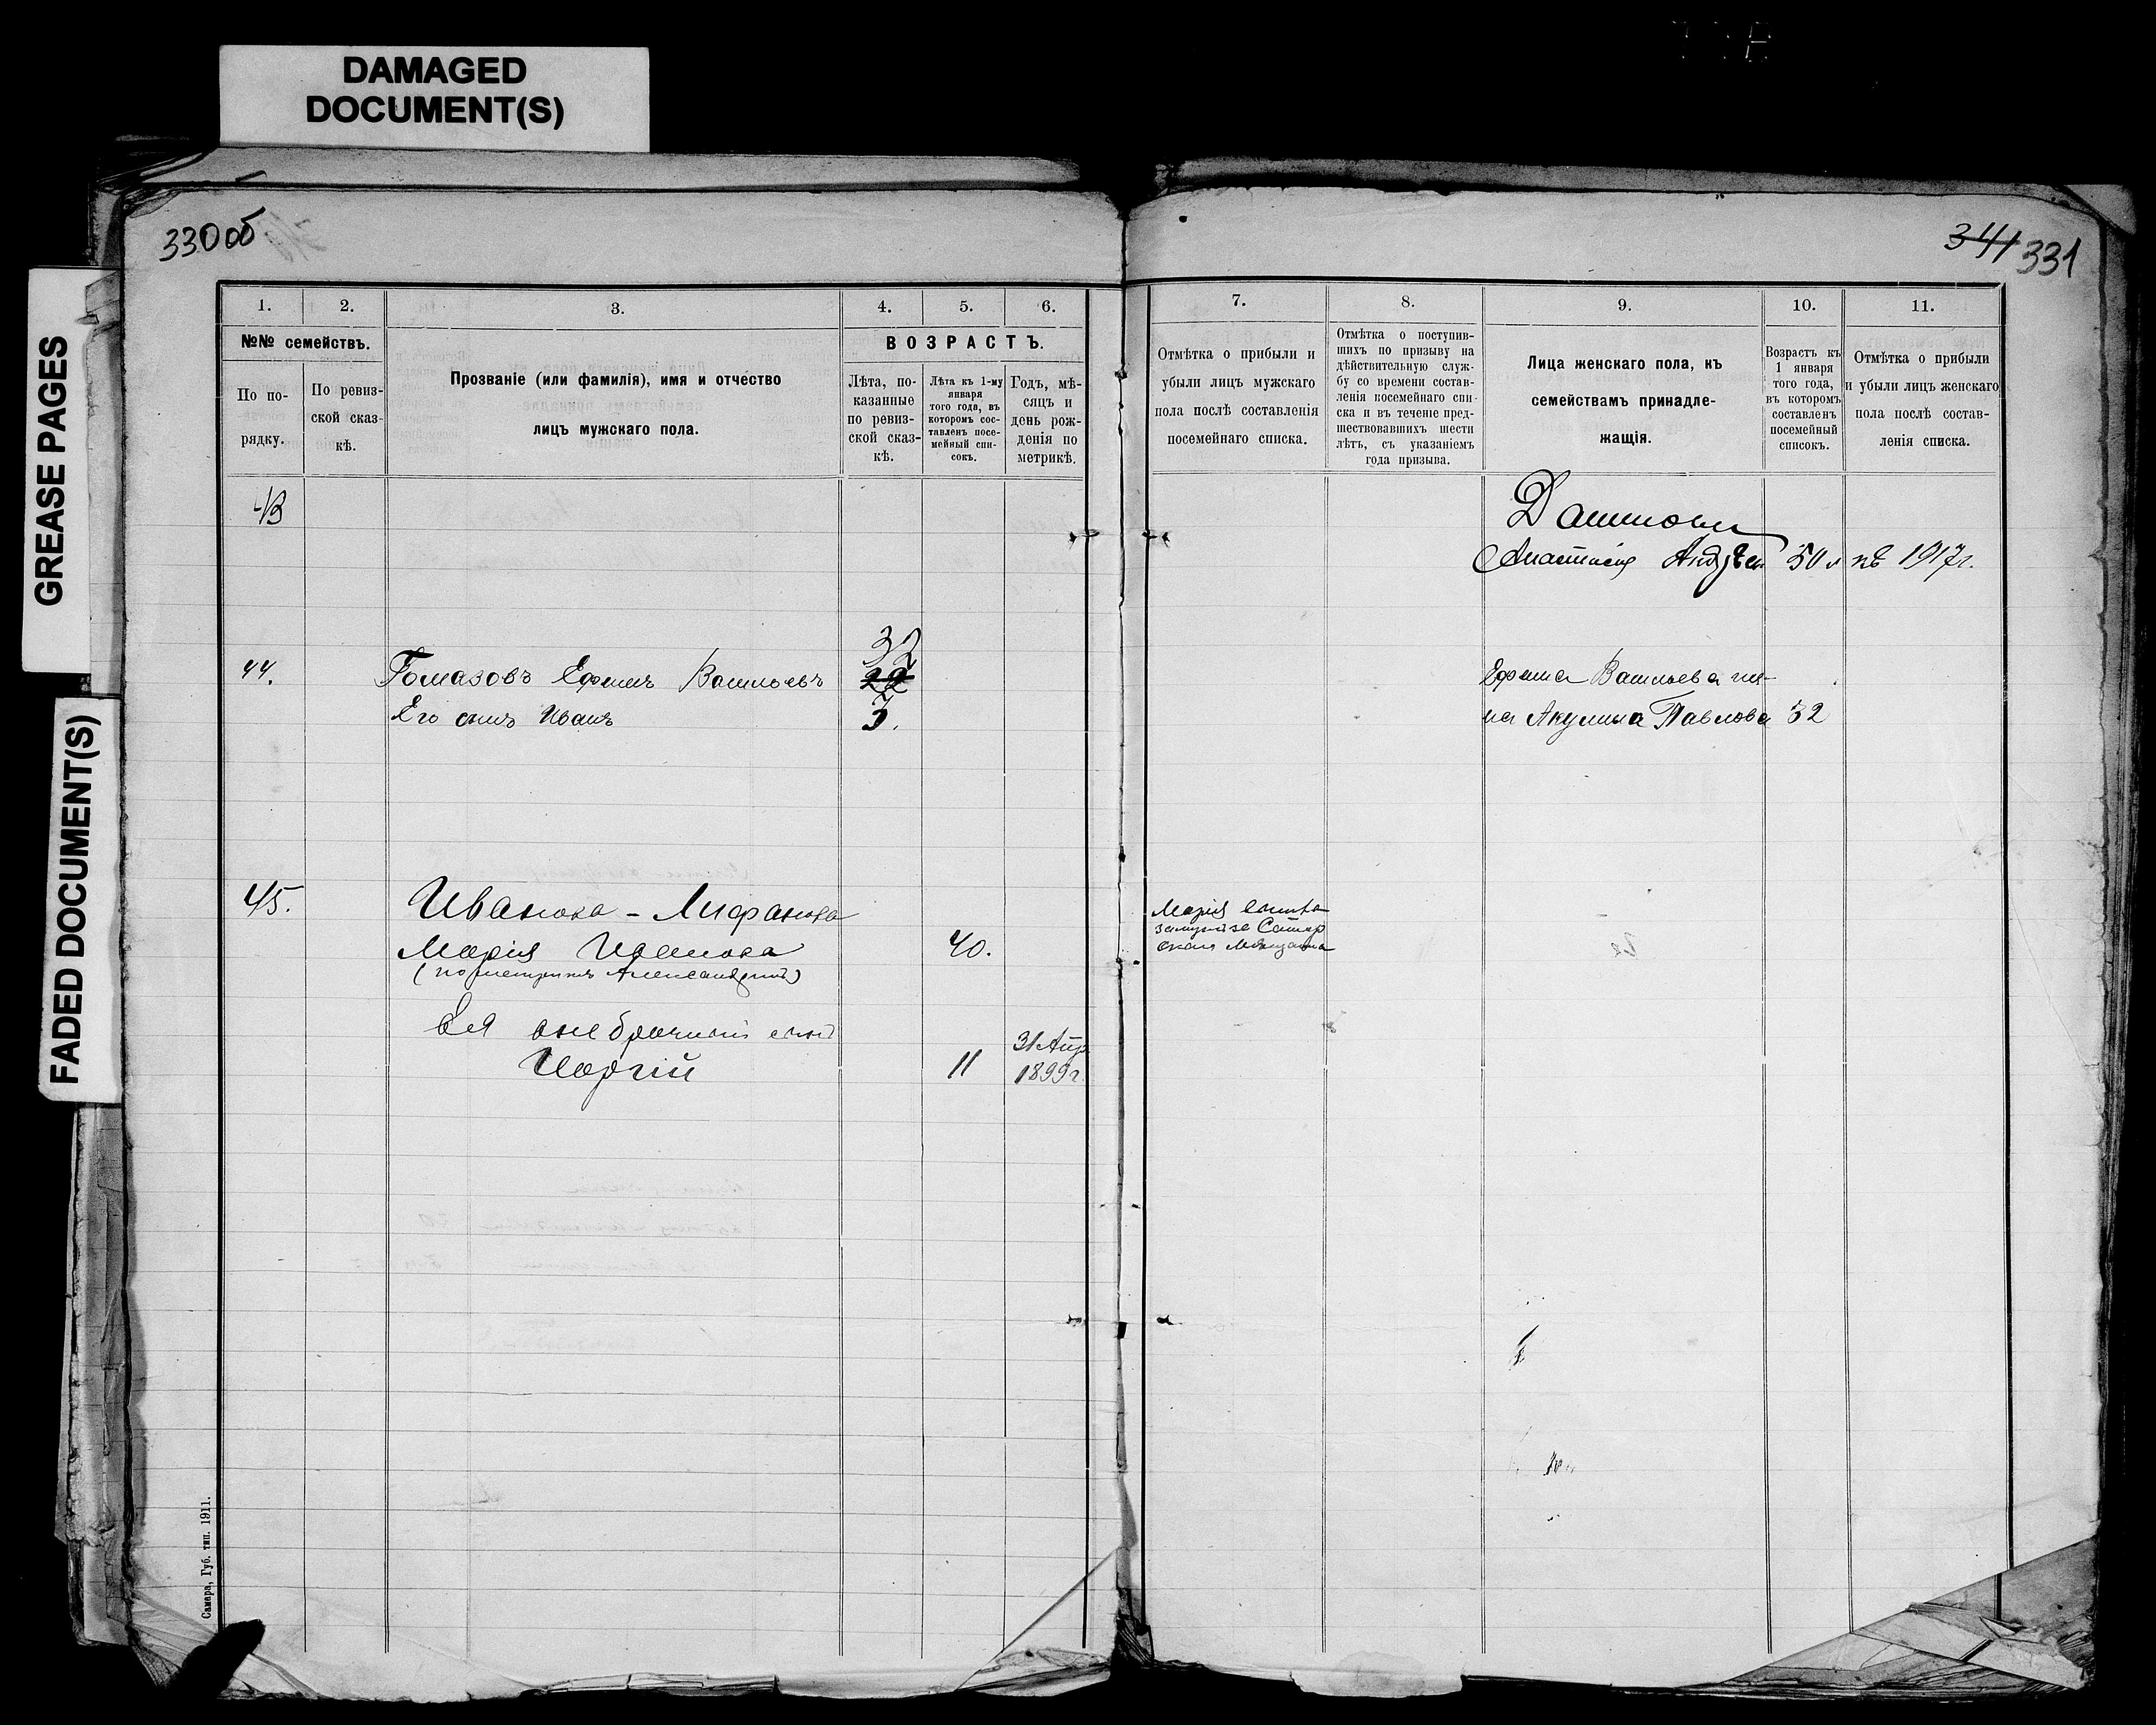 DAMAGED
DOCUMENT(S)
GREASE PAGES
FADED DOCUMENT(S)
330об
341 331
1.
2.
3.
4.
5.
6.
№№ семействъ.
По по-
рядку.
По ревиз-
ской сказ-
кѣ.
Прозваніе (или фамилія), имя и отчество
лицъ мужскаго пола.
ВОЗРАСТЪ.
Лѣта, по-
казанные
по ревиз-
ской сказ-
кѣ.
Лѣта къ 1-му
января
того года, въ
которомъ сос-
тавленъ посе-
мейный спи-
сокъ.
Годъ, мѣ-
сяцъ и
день рож-
денія по
метрикѣ.
7.
8.
9.
10.
11.
Отмѣтка о прибыли и
убыли лицъ мужскаго
пола послѣ составленія
посемейнаго списка.
Отмѣтка о поступив-
шихъ по призыву на
дѣйствительную служ-
бу со времени состав-
ленія посемейнаго спи-
ска и въ теченіе пред-
шествовавшихъ шести
лѣтъ, съ указаніемъ
года призыва.
Лица женскаго пола, къ
семействамъ принадле-
жащія.
Возрастъ къ
1 января
того года,
въ которомъ
составленъ
посемейный
списокъ.
Отмѣтка о прибыли
и убыли лицъ женскаго
пола послѣ состав-
ленія списка.
43
Анастасія 50 къ 1917г.
32
44. Гомазовъ Ефимъ Васильевъ 22
Его сынъ Иванъ
Ефима Васильева же-
на Акулина Павлова 32
45. Иванова - Лифанова
Марія Иванова 40.
(по метрикѣ Александри)
Ея внебрачный сынъ
11
1899г.
Марія
замужъ за
Самара, Губ. тип. 1911.